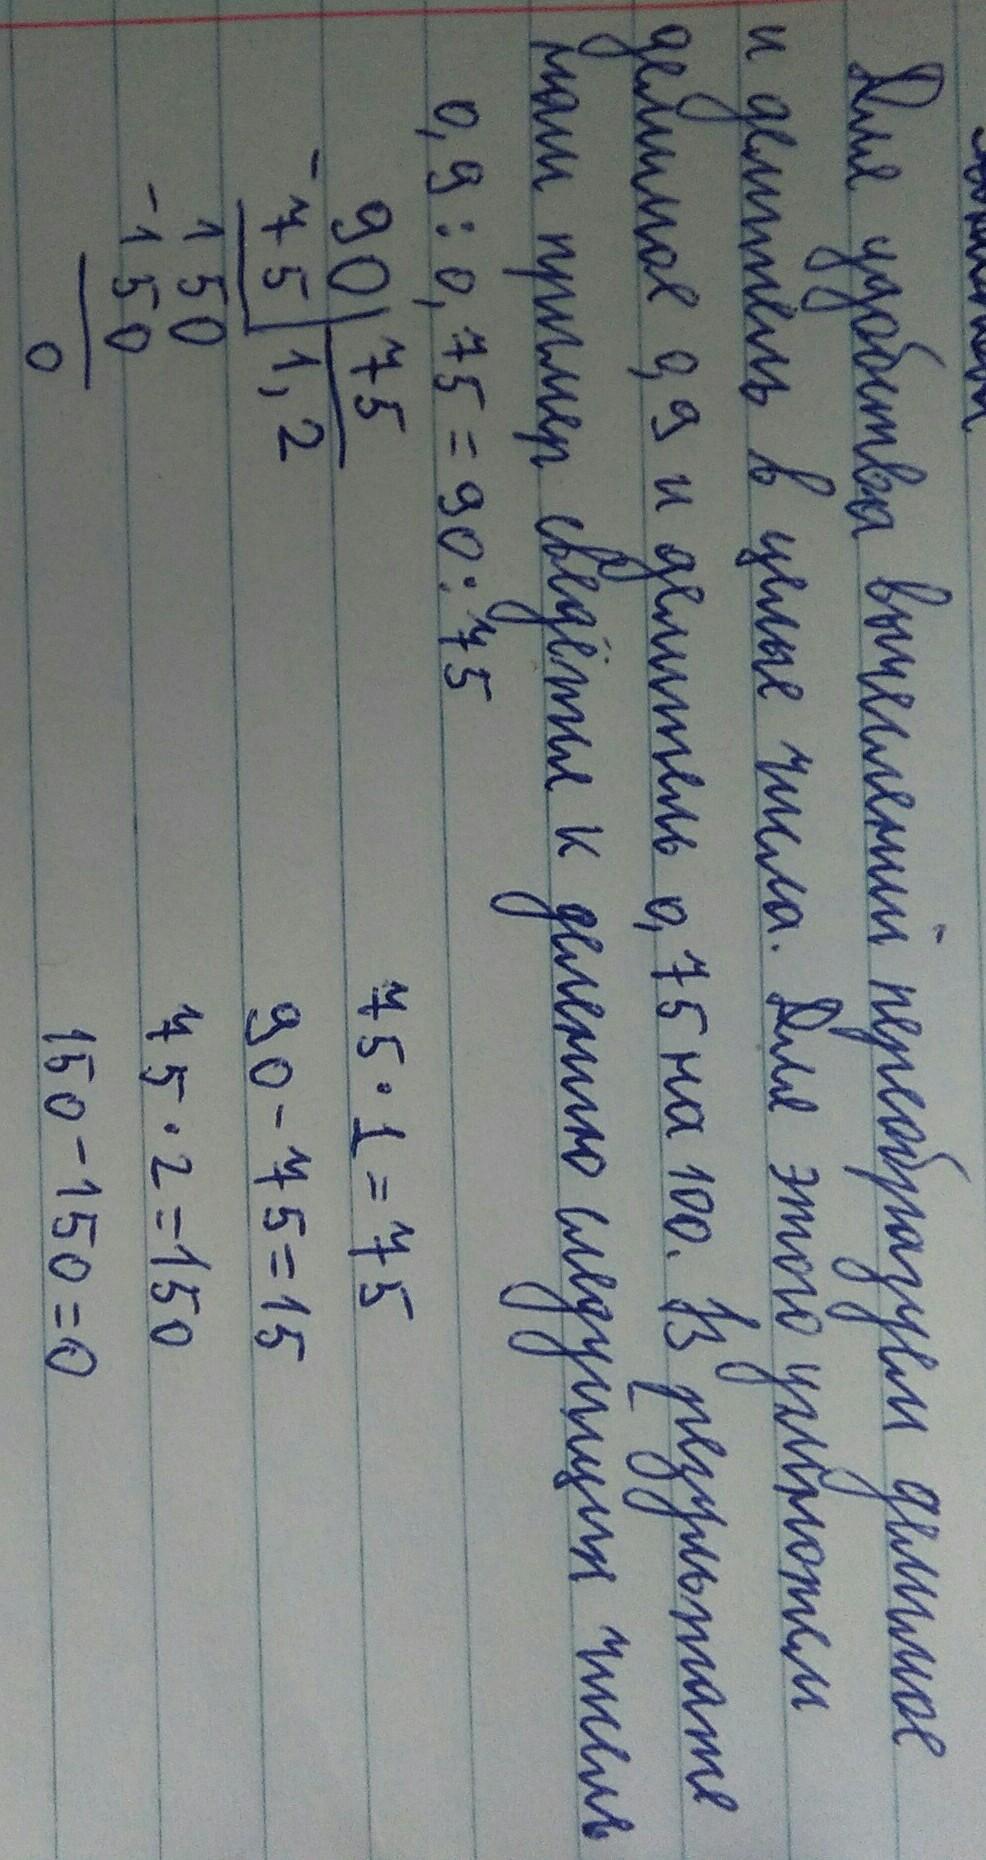 Для удобства вычислений преобразуем делимое
и делитель в целые числа. Для этого умножем
делимое 0,9 и делитель 0,75 на 100. В результате
наш пример сведётся к делению следующих чисель
0,9 : 0,75 = 90 : 75
90 75 75 · 1 = 75
- 75 1,2 90 - 75 = 15
150 75 · 2 = 150
- 150 150 - 150 = 0
0